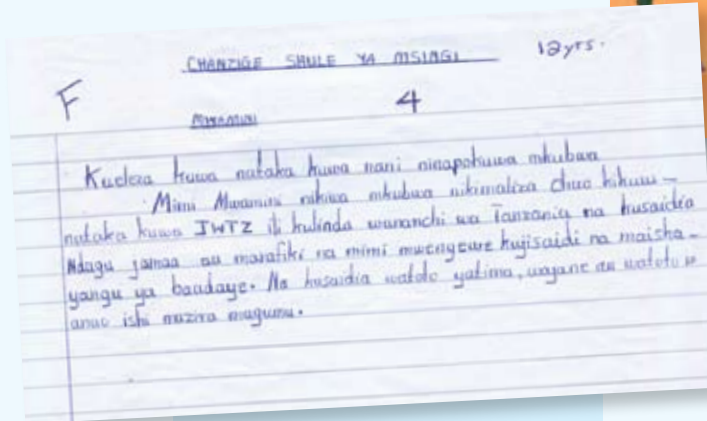 CHANZIGE SHULE YA MSINGI 12yrs.
F
4
Kueleza kuwa nataka kuwa nani ninapokuwa mkubwa
Mimi Mwamini nikiwa mkubwa nikimaliza chuo kikuu -
nataka kuwa JWTZ ili kulinda wananchi wa Tanzania na kusaidia
Ndagu jamaa au marafiki na mimi mwenyewe kujisaidi na maisha -
yangu ya baadaye. Na kusaidia watoto yatima, wajane au watoto w
anao ishi mazira magumu.